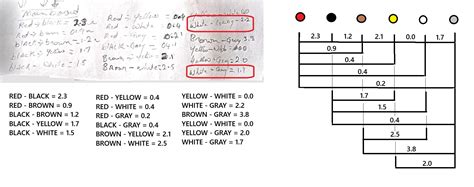 Red - black = 2.3
Red - Yellow = 0.4
White - Gray = 2.2
Red - Gray = 0.2
Brown - Gray 3.8
black - Gray = 0.4
Yellow - Gray = 2.0
black - Brown = 2.1
White - Gray = 1.7
Brown - white = 2.5
RED - BLACK = 2.3
RED - BROWN = 0.9
BLACK - BROWN = 1.2
BLACK - YELLOW = 1.7
BLACK - WHITE = 1.5
RED - YELLOW = 0.4
RED - WHITE = 0.4
RED - GRAY = 0.2
BLACK - GRAY = 0.4
BROWN - YELLOW = 2.1
BROWN - WHITE = 2.5
YELLOW - WHITE = 0.0
WHITE - GRAY = 2.2
BROWN - GRAY = 3.8
YELLOW - WHITE = 0.0
YELLOW - GRAY = 2.0
WHITE - GRAY = 1.7
2.3 1.2 2.1 0.0 1.7
0.9
0.4
0.4
0.2
1.7
1.5
0.4
2.5
3.8
2.0